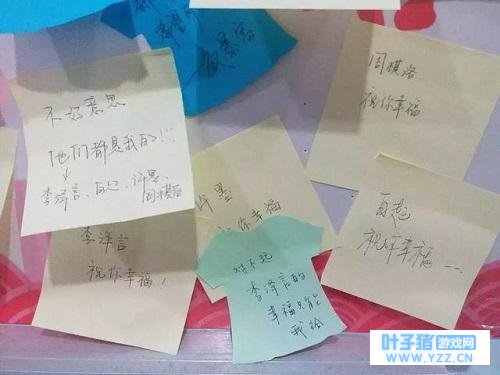 不好意思
他们都是我的!!!
李泽言、白起、许墨、
周棋洛
周棋洛
祝你幸福
许墨
祝你幸福
李泽言
祝你幸福!
对不起
李泽言的
幸福只能
我给
白起
祝你幸福……
叶子猪 游戏网
WWW.YZZ.CN